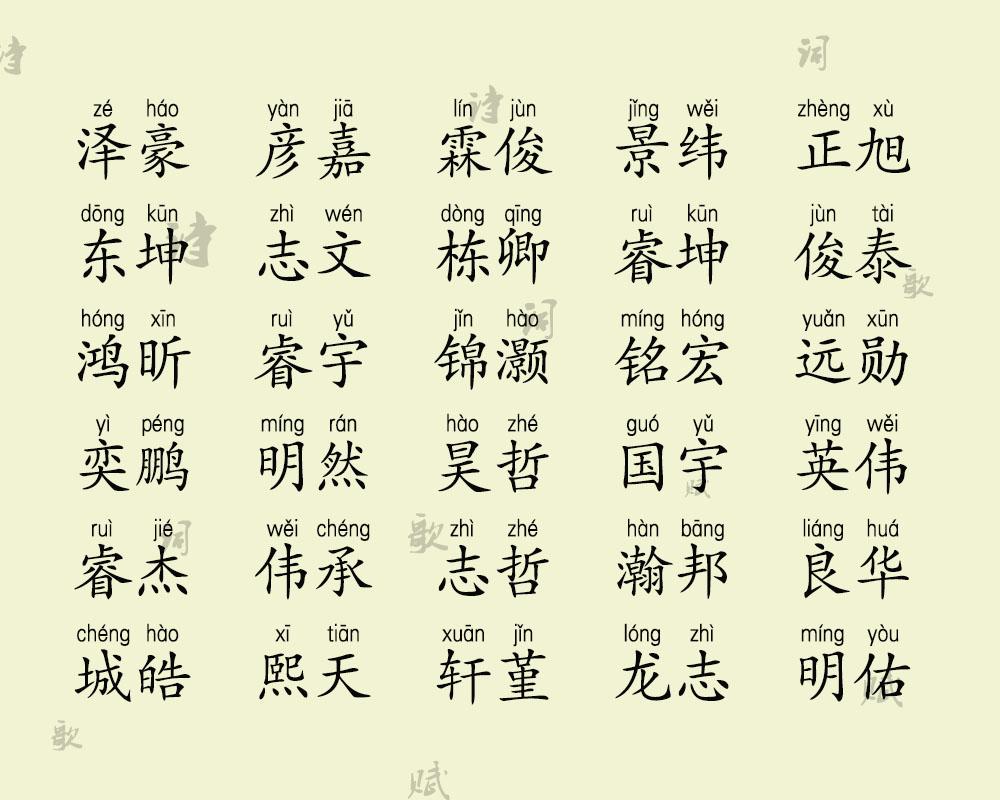 词
诗
诗
zé háo yàn jiā lín jùn jǐng wěi zhèng xù
泽豪 彦嘉 霖俊 景纬 正旭
dōng kūn zhì wén dòng qīng ruì kūn jùn tài
东坤 志文 栋卿 睿坤 俊泰
诗
歌
hóng xīn ruì yǔ jǐn hào míng hóng yuǎn xūn
鸿昕 睿宇 锦灏 铭宏 远勋
词
yì péng míng rán hào zhé guó yǔ yīng wěi
奕鹏 明然 昊哲 国宇 英伟
赋
ruì jié wěi chéng zhì zhé hàn bāng liáng huá
睿杰 伟承 志哲 瀚邦 良华
词
歌
chéng hào xī tiān xuān jǐn lóng zhì míng yòu
城皓 熙天 轩堇 龙志 明佑
赋
歌
赋